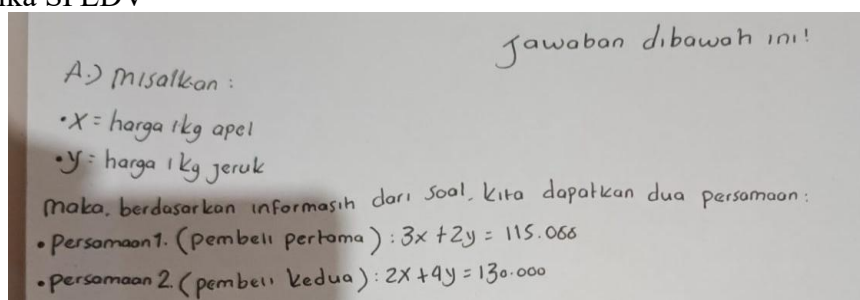 Jawaban dibawah ini!
A.) Misalkan :
• X = harga 1kg apel
• y = harga 1 kg jeruk
maka, berdasarkan informasih dari soal, kita dapatkan dua persamaan :
• Persamaan 1. (Pembeli pertama) : 3x + 2y = 115.000
• persamaan 2. (pembeli kedua) : 2x + 4y = 130.000